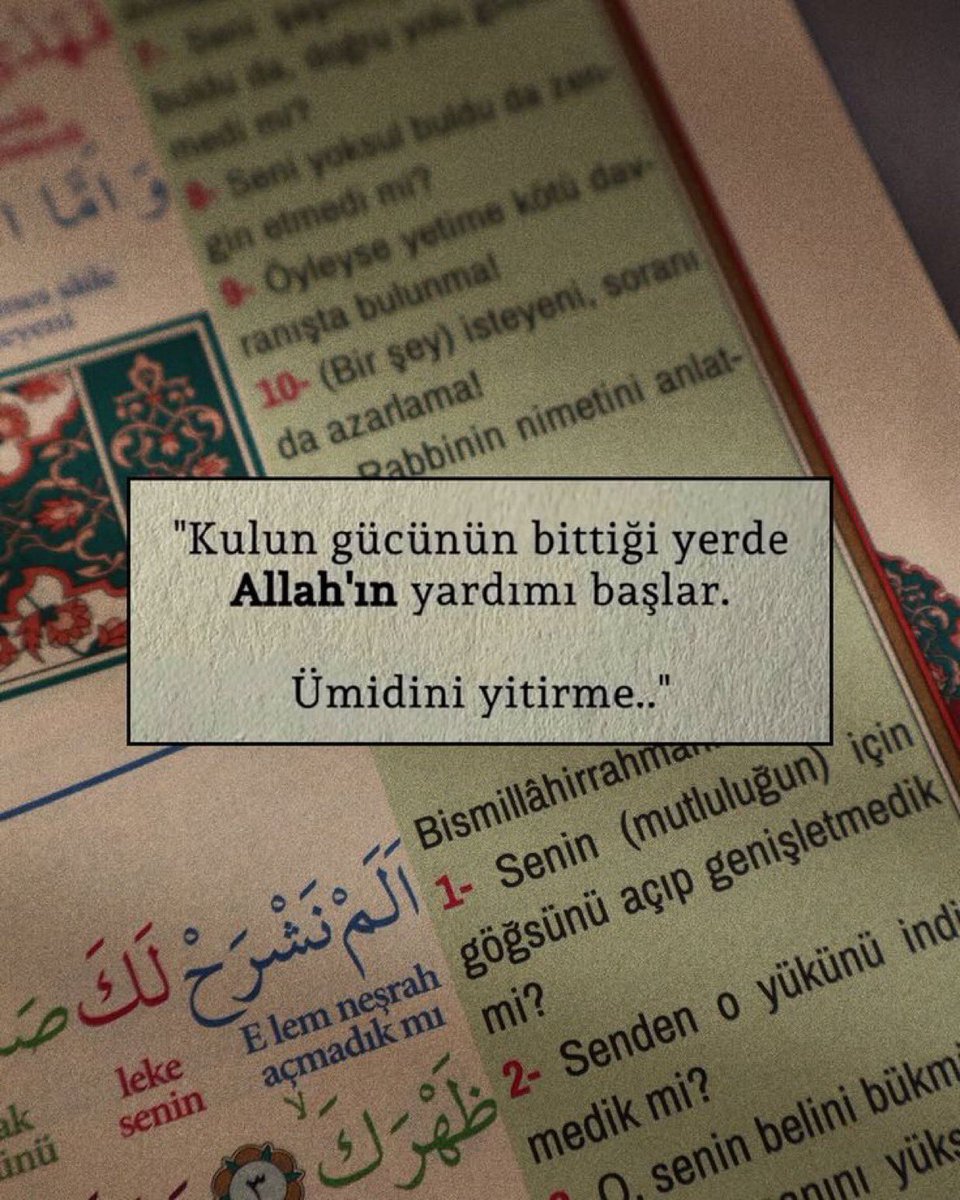 7- Seni
buldu da, doğru yolu
medi mi?
8- Seni yoksul buldu da zen-
gin etmedi mi?
9- Öyleyse yetime kötü dav-
ranışta bulunma!
10- (Bir şey) isteyeni, soranı
da azarlama!
Rabbinin nimetini anlat-
"Kulun gücünün bittiği yerde
Allah'ın yardımı başlar.
Ümidini yitirme.."
Bismillâhirrahman
1- Senin (mutluluğun) için
göğsünü açıp genişletmedik
mi?
2- Senden o yükünü indi
medik mi?
O, senin belini bükm
yüks
وَاَمَّا
اَلَمْ نَشْرَحْ لَكَ
E lem neşrah leke
açmadık mı senin
ظَهْرَكَ
٣